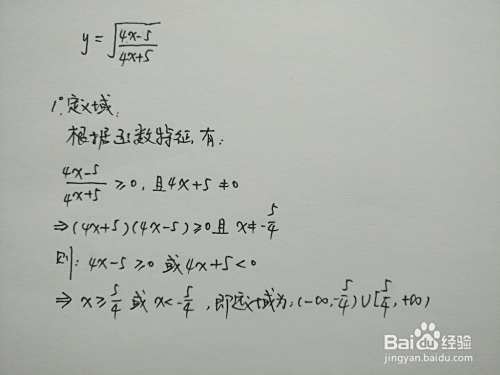 y = √((4x-5)/(4x+5))
1°.定义域:
根据函数特征,有:
(4x-5)/(4x+5) ≥0, 且4x+5 ≠0
⇒(4x+5)(4x-5)≥0且 x≠-5/4
则: 4x-5 ≥0 或4x+5<0
⇒ x≥5/4 或 x<-5/4 , 即定义域为:(-∞,-5/4)∪[5/4,+∞)
Bai du 经验
jingyan.baidu.com